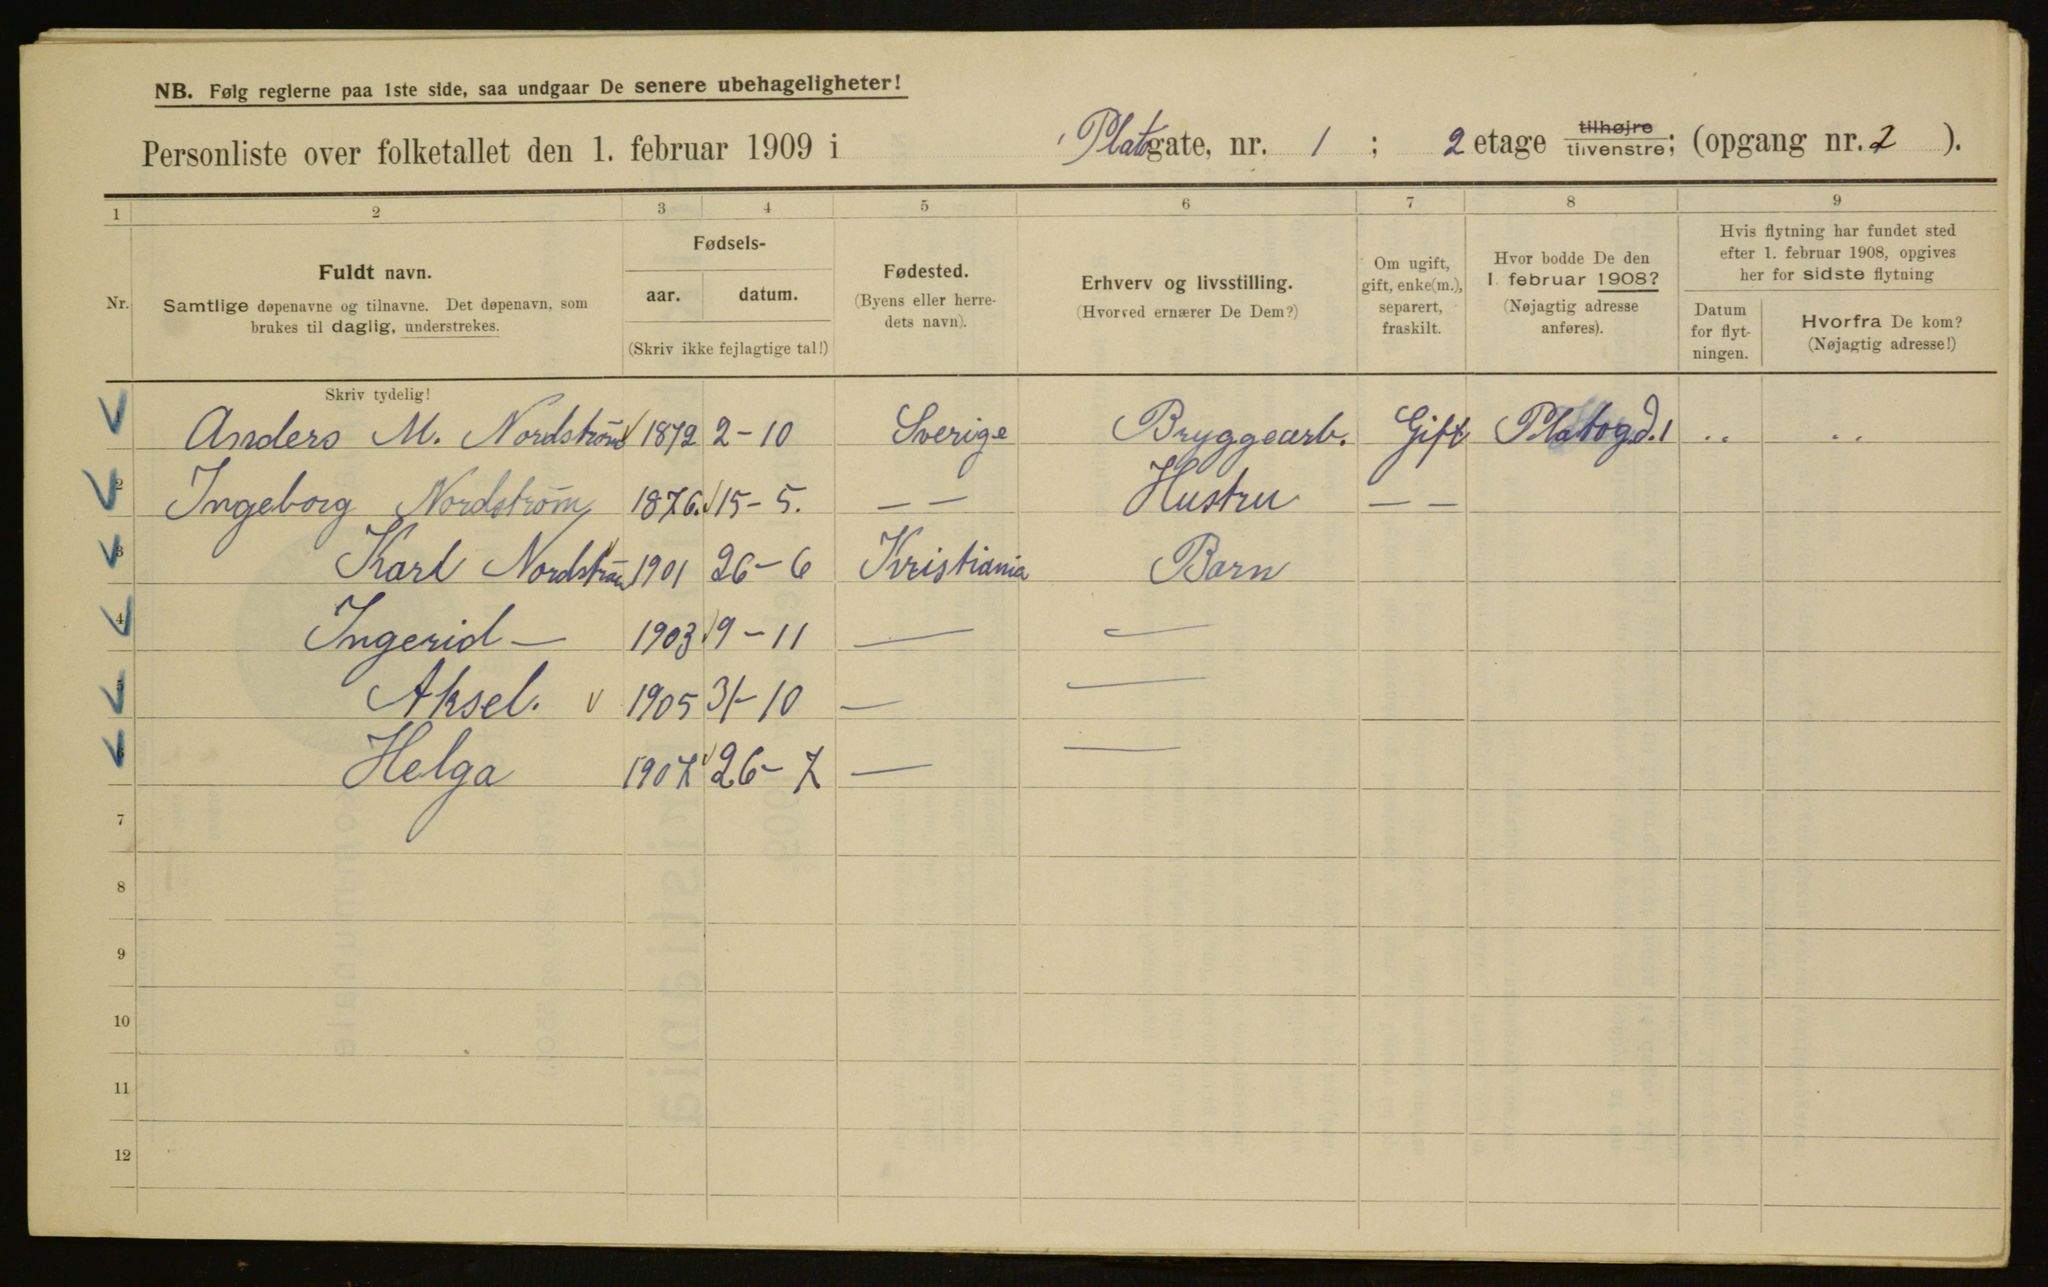 NB. Følg reglerne paa 1ste side, saa undgaar De senere ubehageligheter!
Personliste over folketallet den 1. februar 1909 i Platogate, nr. 1 ; 2 etage tilhøjre tilvenstre; (opgang nr. 2 ).
1 2 3 4 5 6 7 8 9
Nr.
Fuldt navn.
Samtlige døpenavne og tilnavne. Det døpenavn, som
brukes til daglig, understrekes.
Fødsels-
aar. datum.
(Skriv ikke fejlagtige tal!)
Fødested.
(Byens eller herre-
dets navn).
Erhverv og livsstilling.
(Hvorved ernærer De Dem?)
Om ugift,
gift, enke(m.),
separert,
fraskilt.
Hvor bodde De den
1. februar 1908?
(Nøjagtig adresse
anføres).
Hvis flytning har fundet sted
efter 1. februar 1908, opgives
her for sidste flytning
Datum
for flyt-
ningen.
Hvorfra De kom?
(Nøjagtig adresse!)
Skriv tydelig!
1 Anders M. Nordstrøm 1872 2-10 Sverige Bryggearb. Gift Platogd. 1 .. ..
2 Ingeborg Nordstrøm 1876. 15-5. — — Hustru — —
3 Karl Nordstrøm 1901 26-6 Kristiania Barn
4 Ingerid — 1903 9-11 — —
5 Aksel. 1905 31-10 — —
6 Helga 1907 26-7 — —
7
8
9
10
11
12